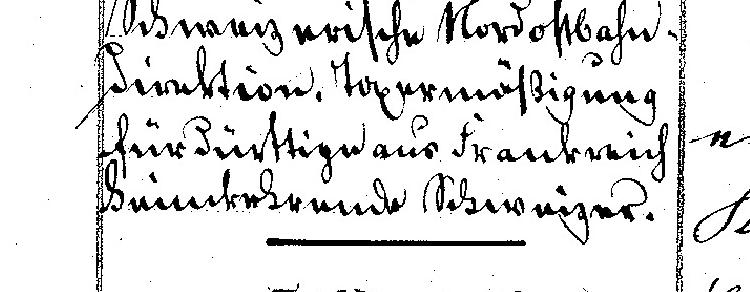 Schweizerische Nordostbahn-
Direktion. Taxermäßigung
für Dürftige aus Frankreich
heimkehrende Schweizer.